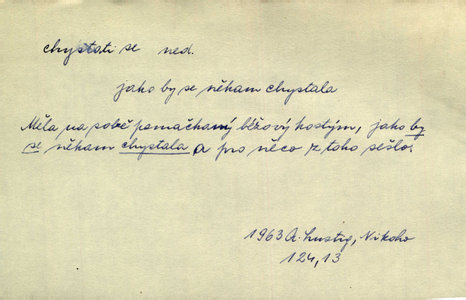 chystati se ned.
jako by se někam chystala
Měla na sobě pomačkaný béžový kostým, jako by
se někam chystala a pro něco z toho sešlo.
1963 A. Lustig, Nikoho
124,13